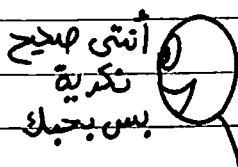 أنتي صحيح
نكدية
بس بحبك